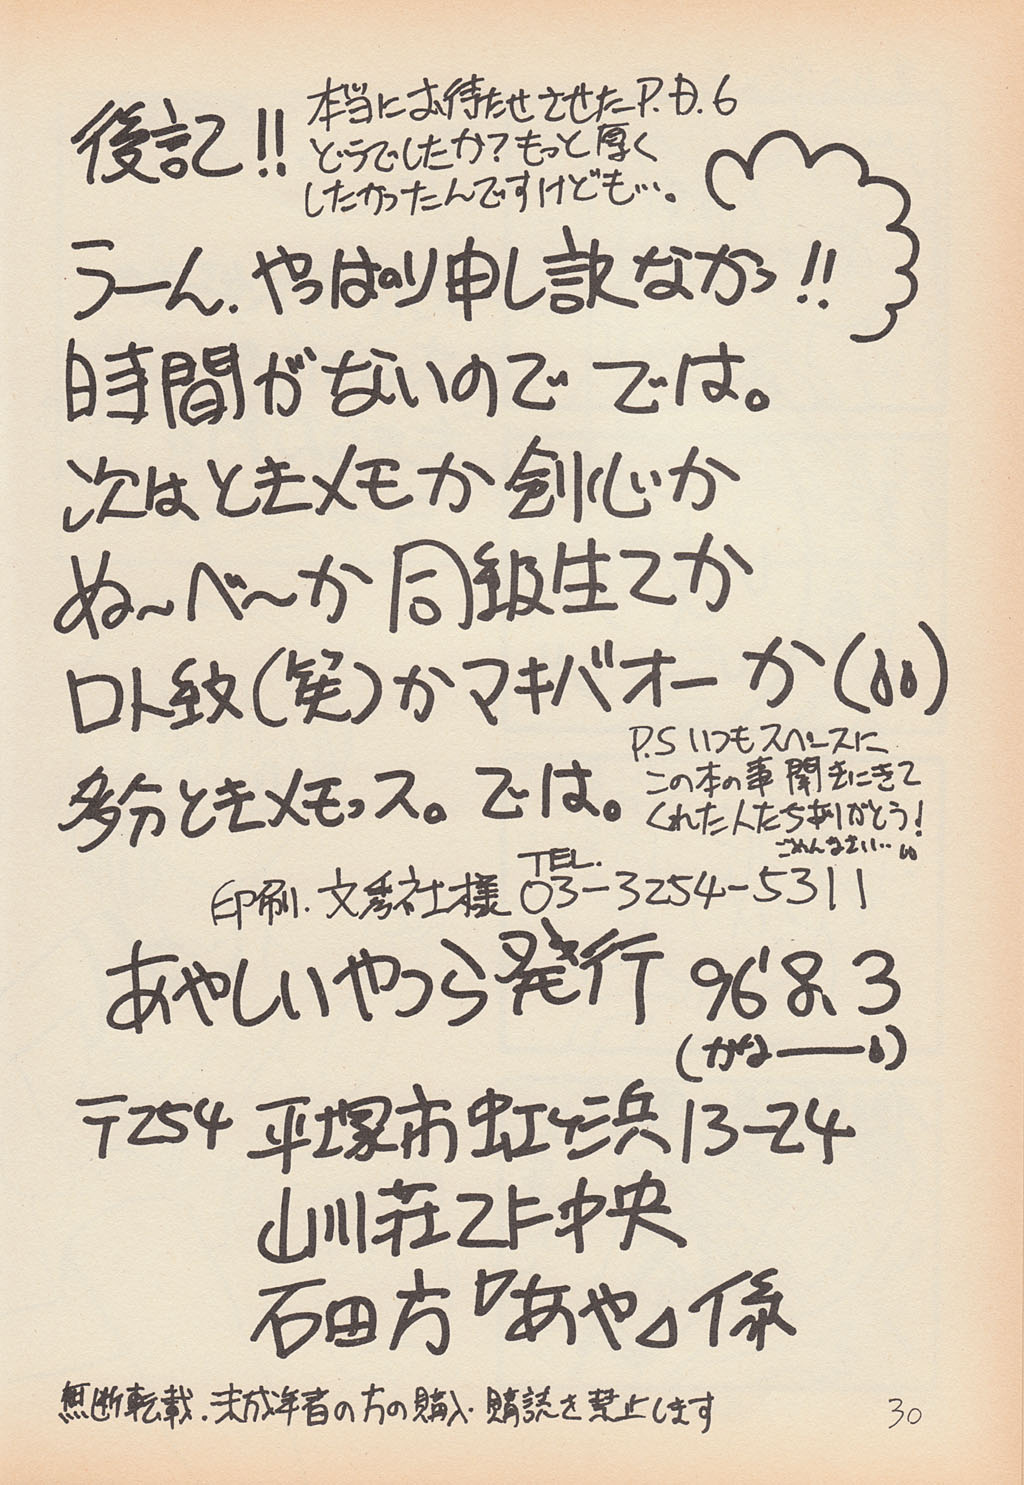 後記!!
本当にお待たせさせたP.D.6
どうでしたか?もっと厚く
したかったんですけども…。
うーん.やっぱり申し訳なかっ!!
時間がないので では。
次はときメモか剣心か
ぬ~べ~か同級生2か
ロト紋(笑)かマキバオーか( )
多分ときメモっス。では。
P.S いつもスペースに
この本の事聞きにきて
くれた人たちありがとう!
ごめんなさい…
印刷.文秀社様 TEL.03-3254-5311
あやしいやつら発行 96'8.3
(かな――)
〒254 平塚市虹ヶ浜13-24
山川荘2F中央
石田方『あや』係
無断転載.未成年者の方の購入.購読を禁止します
30